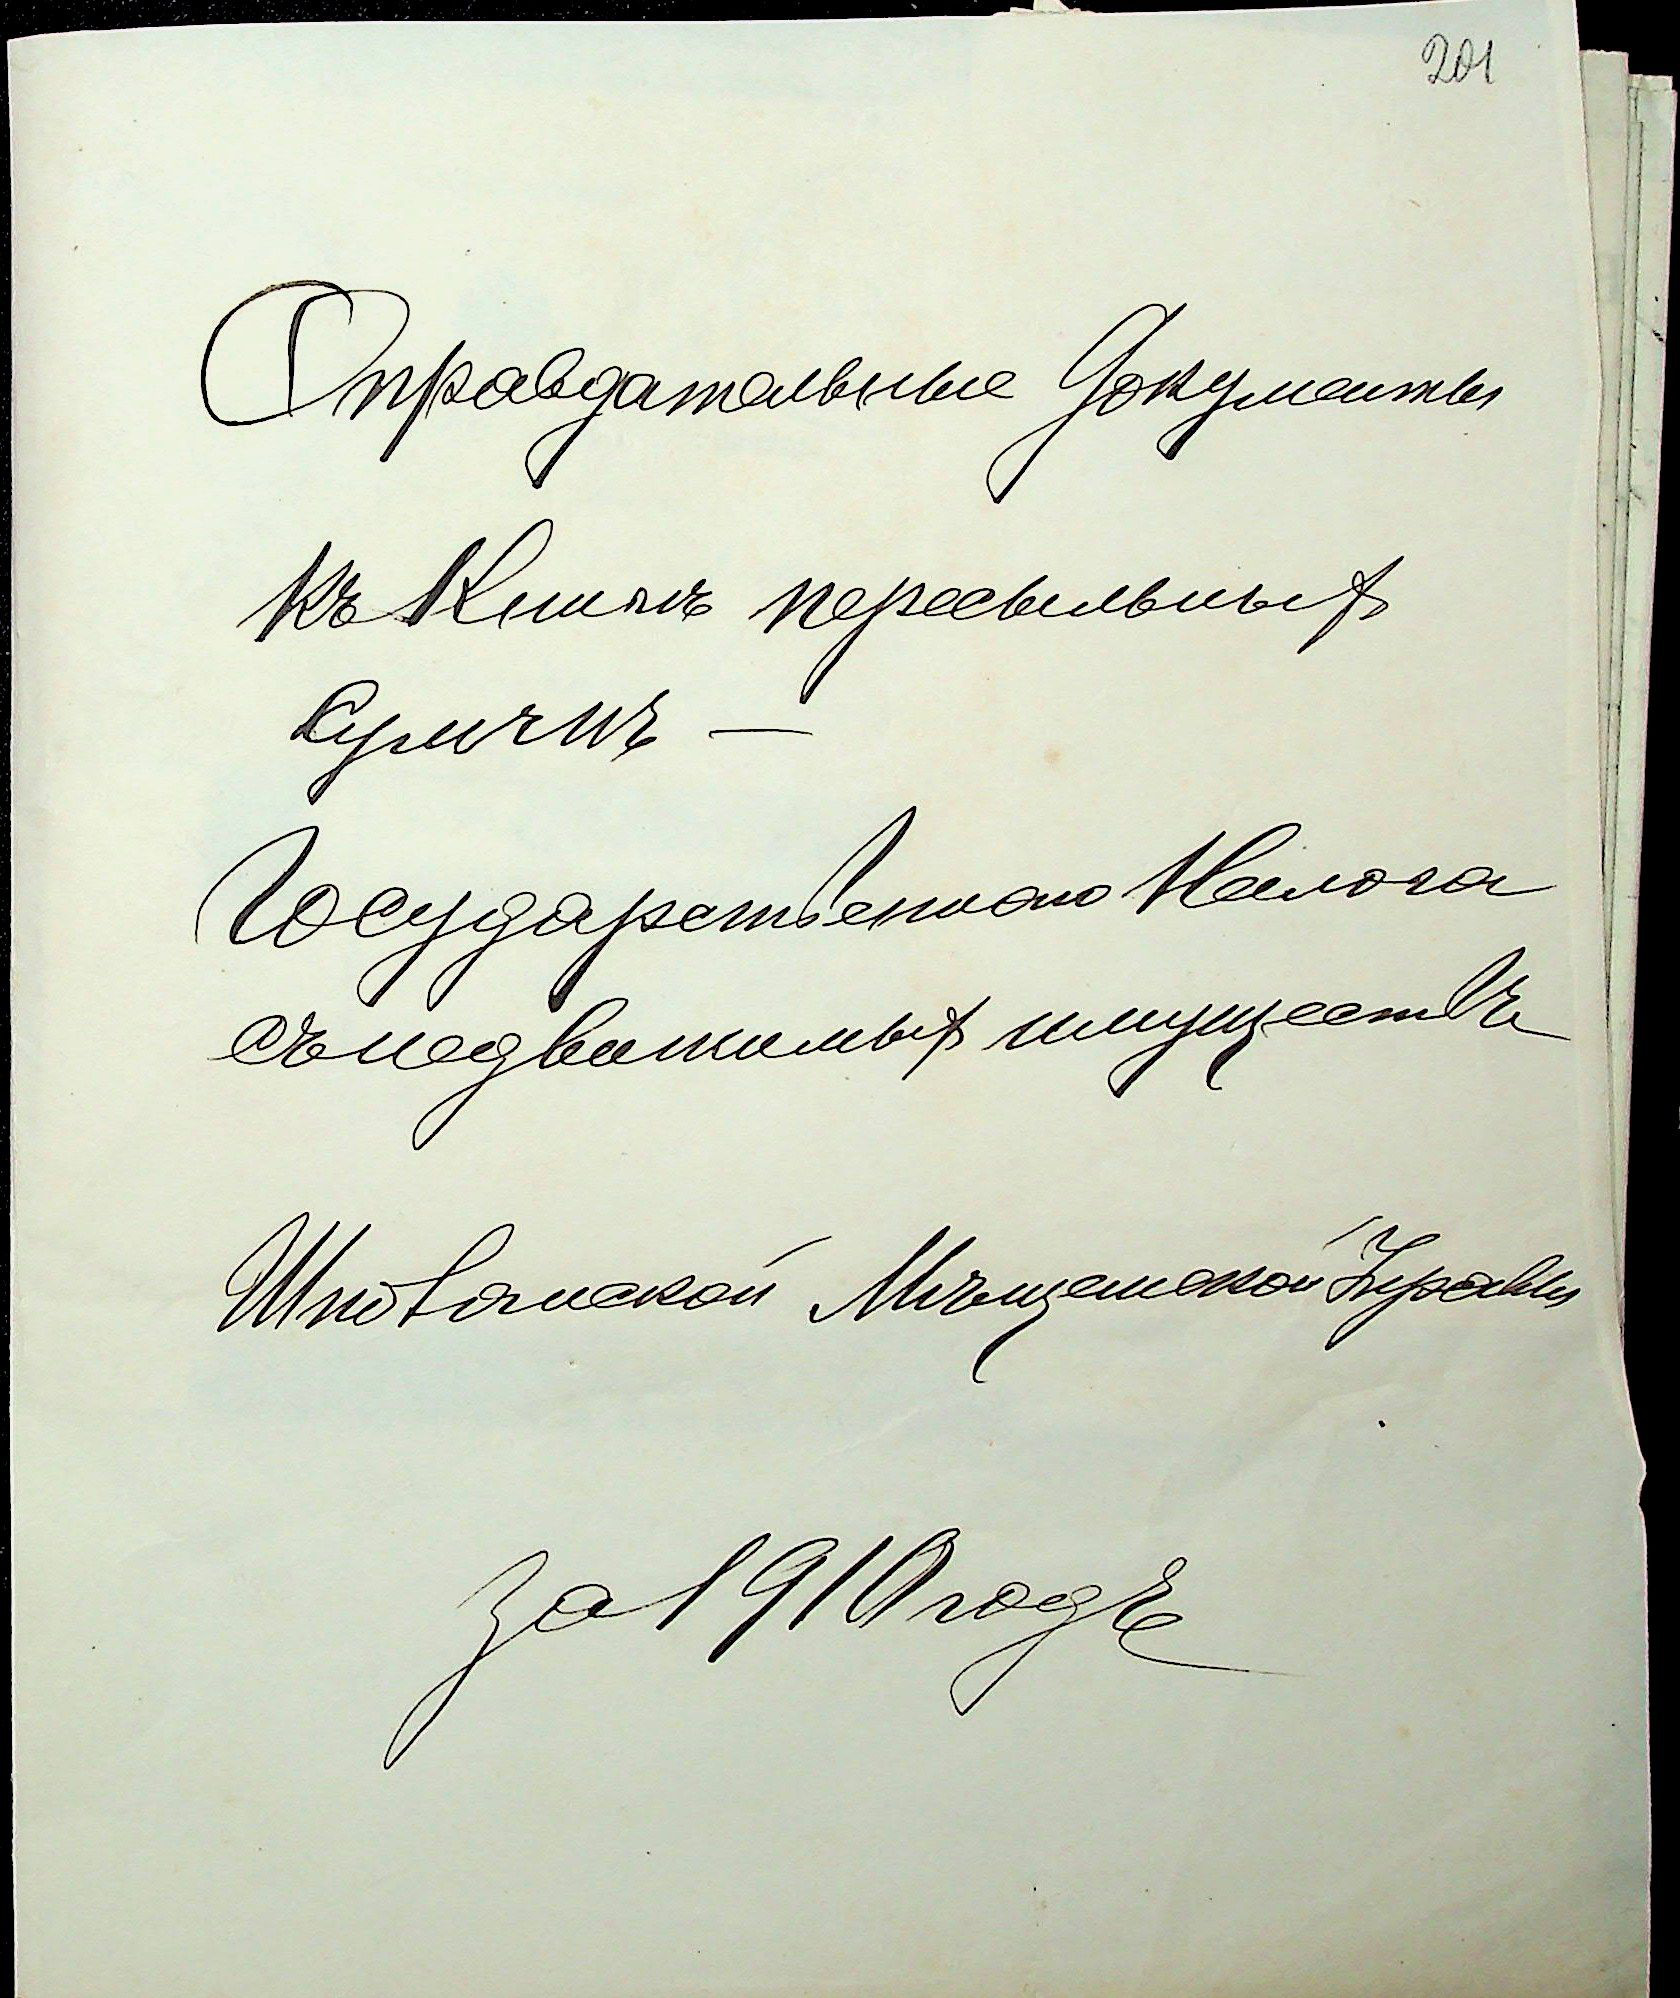 201
Оправдательные Документы
къ Книгѣ пересыльныхъ
суммъ —
Государственнаго Налога
съ недвижимыхъ имуществъ
Шповянской Мѣщанской Управы
за 1910 годъ